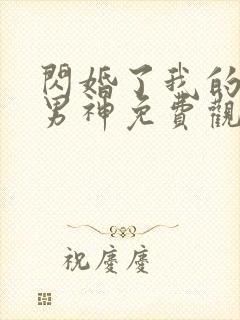 閃婚了我的
男神免費觀
祝慶慶